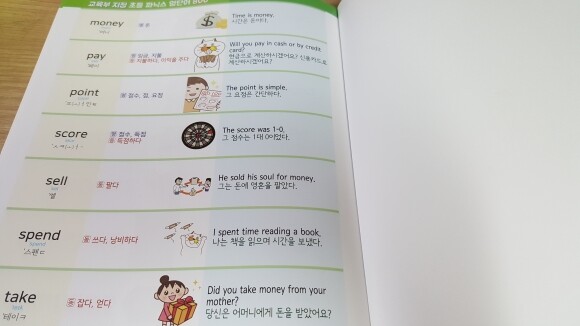 교육부 지정 초등 파닉스 영단어 800
money
Time is money.
시간은 돈이다.
pay
명 임금, 지불
동 지불하다, 이익을 주다
Will you pay in cash or by credit
card?
현금으로 계산하시겠어요? 신용카드로
계산하시겠어요?
point
명 점수, 점, 요점
The point is simple.
그 요점은 간단하다.
score
명 점수, 득점
동 득점하다
The score was 1-0.
그 점수는 1대 0이었다.
sell
동 팔다
He sold his soul for money.
그는 돈에 영혼을 팔았다.
spend
동 쓰다, 낭비하다
I spent time reading a book.
나는 책을 읽으며 시간을 보냈다.
take
테이크
동 잡다, 얻다
Did you take money from your
mother?
당신은 어머니에게 돈을 받았어요?